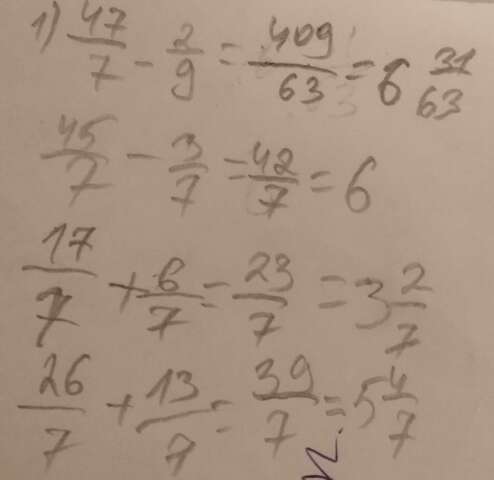 1) 47/7 - 2/9 = 409/63 = 6 31/63
45/7 - 3/7 = 42/7 = 6
17/7 + 6/7 = 23/7 = 3 2/7
26/7 + 13/7 = 39/7 = 5 4/7